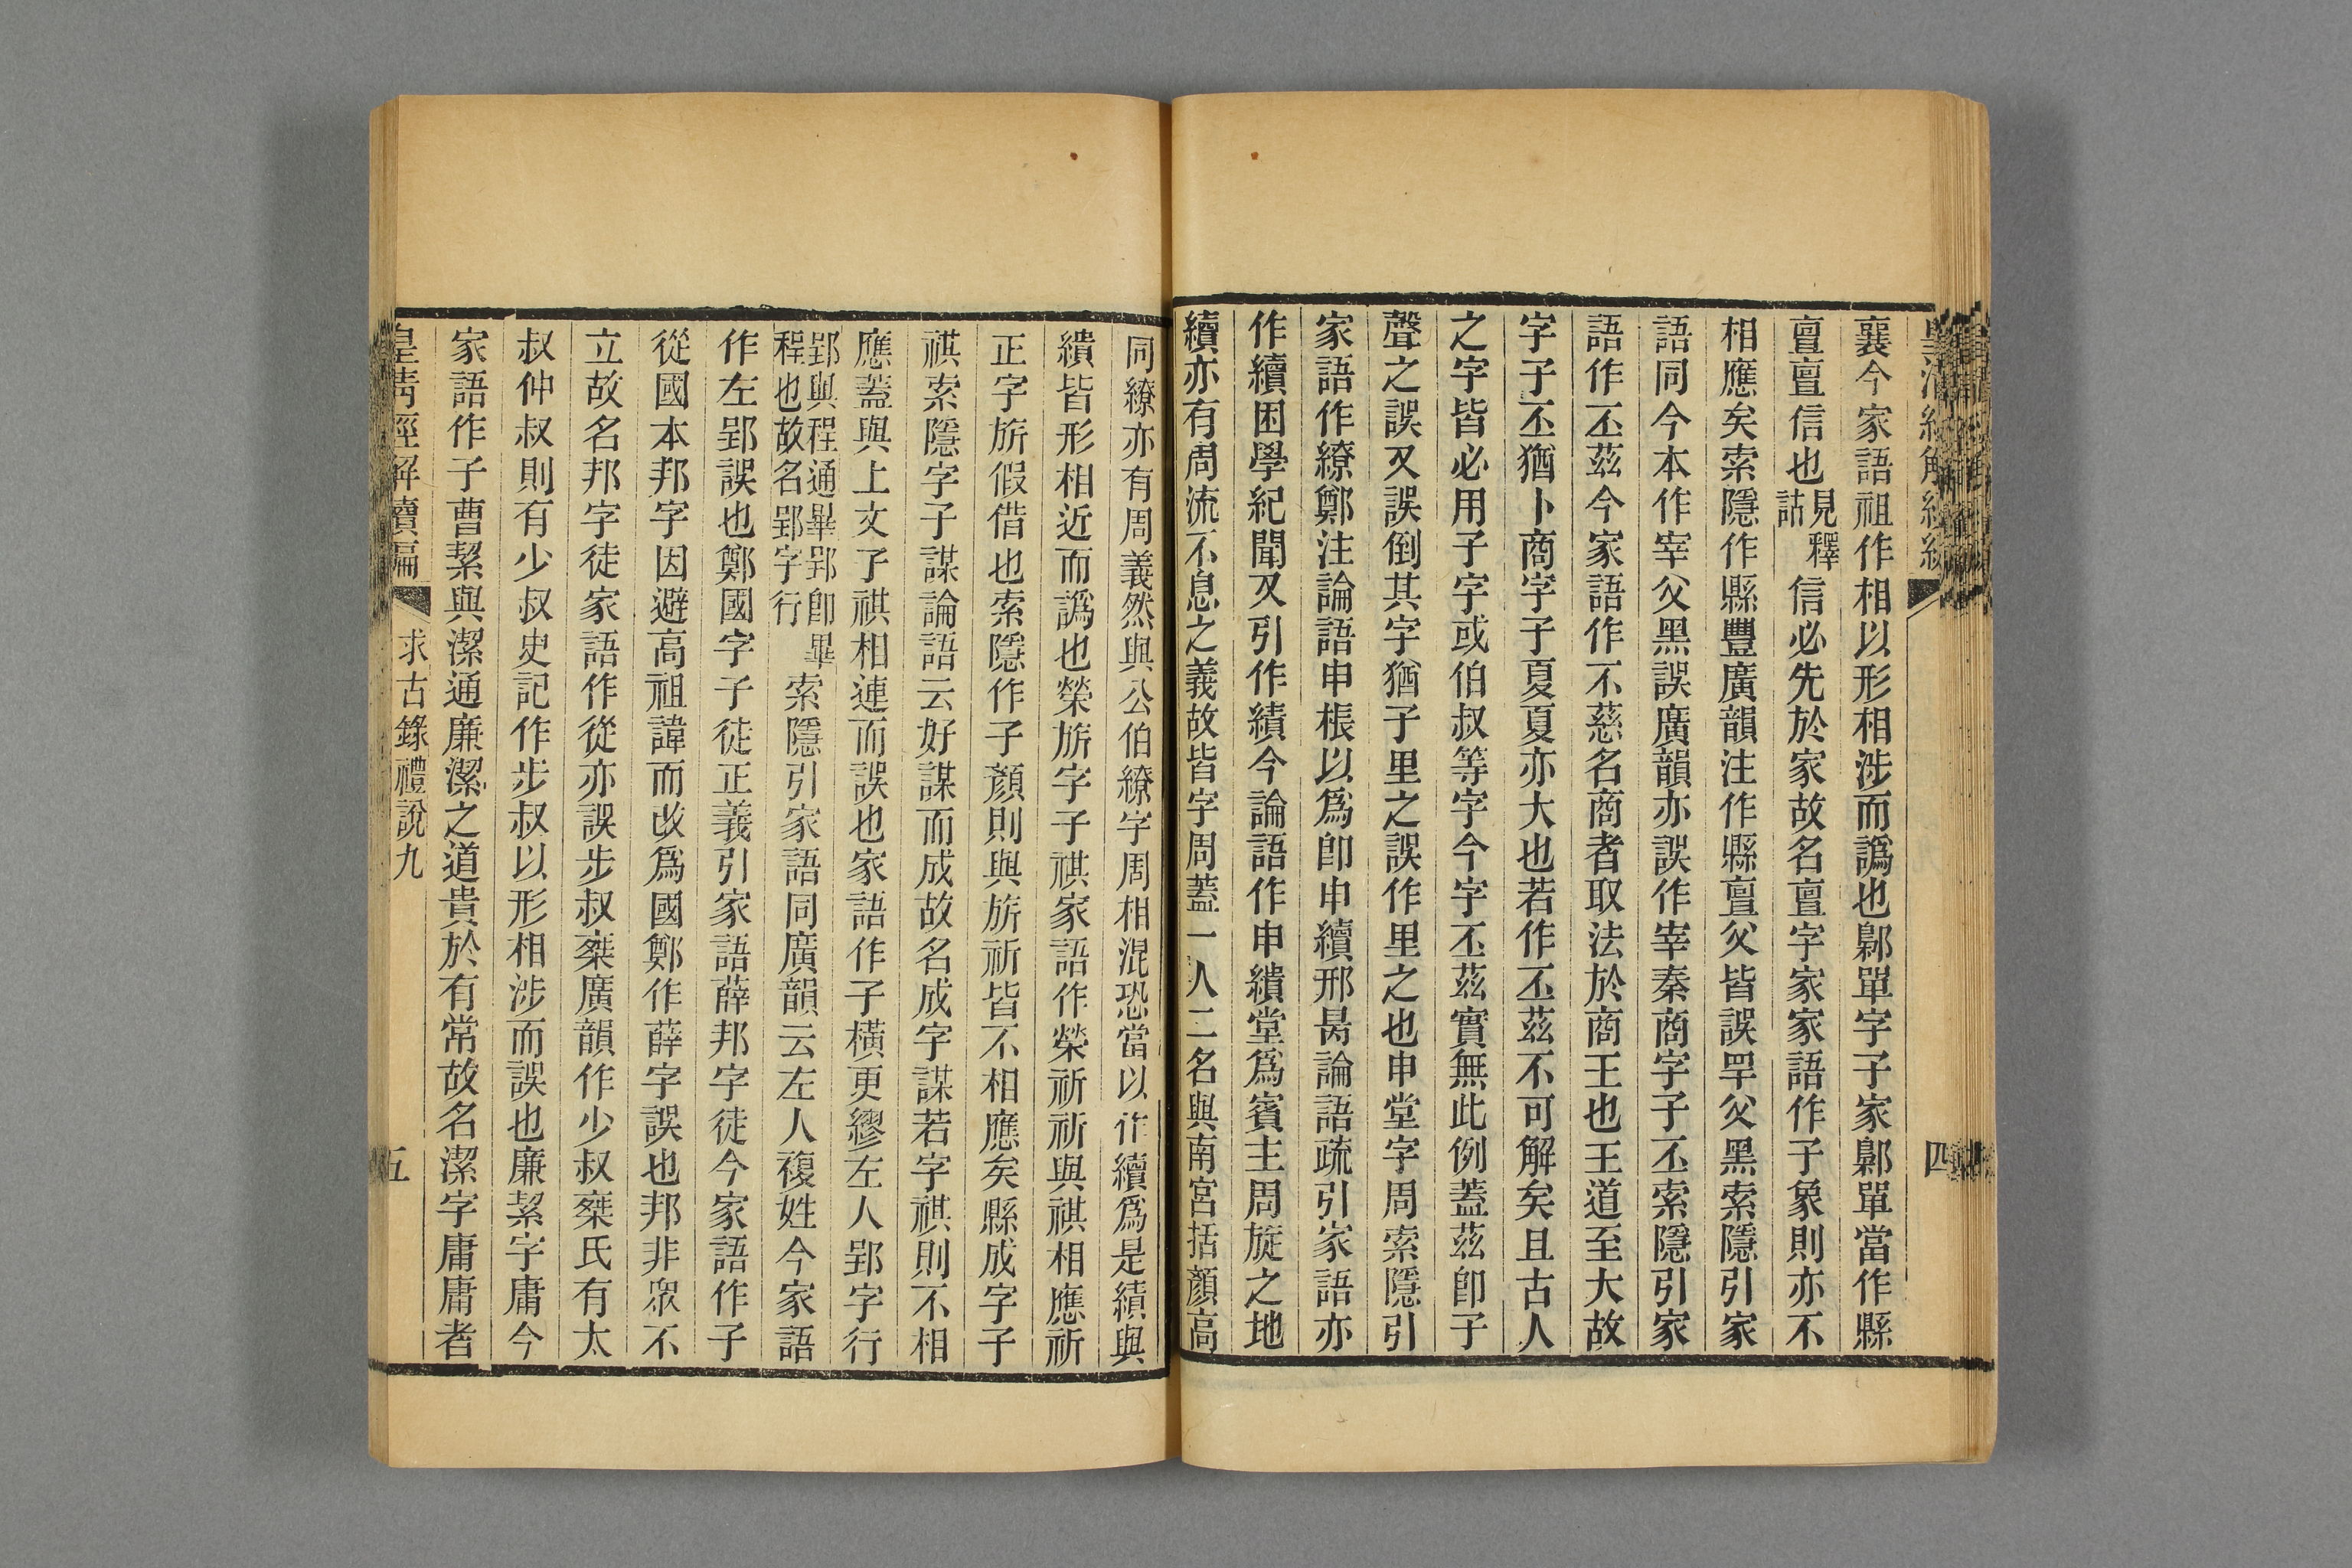 襄今家語祖作相以形相涉而譌也鄡單字子家鄡單當作縣
亶亶信也見釋詁信必先於家故名亶字家家語作子象則亦不
相應矣索隱作縣豐廣韻注作縣亶父皆誤罕父黑索隱引家
語同今本作宰父黑誤廣韻亦誤作宰秦商字子丕索隱引家
語作丕茲今家語作不慈名商者取法於商王也王道至大故
字子丕猶卜商字子夏夏亦大也若作丕茲不可解矣且古人
之字皆必用子字或伯叔等字今字丕茲實無此例蓋茲卽子
聲之誤又誤倒其字猶子里之誤作里之也申堂字周索隱引
家語作繚鄭注論語申棖以爲卽申續邢昺論語疏引家語亦
作續困學紀聞又引作績今論語作申繢堂爲賓主周旋之地
續亦有周流不息之義故皆字周蓋一人二名與南宮括顏高
同繚亦有周義然與公伯繚字周相混恐當以作續爲是績與
繢皆形相近而譌也榮旂字子祺家語作榮祈祈與祺相應祈
正字旂假借也索隱作子顏則與旂祈皆不相應矣縣成字子
祺索隱字子謀論語云好謀而成故名成字謀若字祺則不相
應蓋與上文子祺相連而誤也家語作子橫更繆左人郢字行
郢與程通畢郢卽畢程也故名郢字行索隱引家語同廣韻云左人複姓今家語
作左郢誤也鄭國字子徒正義引家語薛邦字徒今家語作子
從國本邦字因避高祖諱而改爲國鄭作薛字誤也邦非眾不
立故名邦字徒家語作從亦誤步叔椉廣韻作少叔椉氏有太
叔仲叔則有少叔史記作步叔以形相涉而誤也廉絜字庸今
家語作子曹絜與潔通廉潔之道貴於有常故名潔字庸庸者
皇清經解續編
求古錄禮說九
五
四